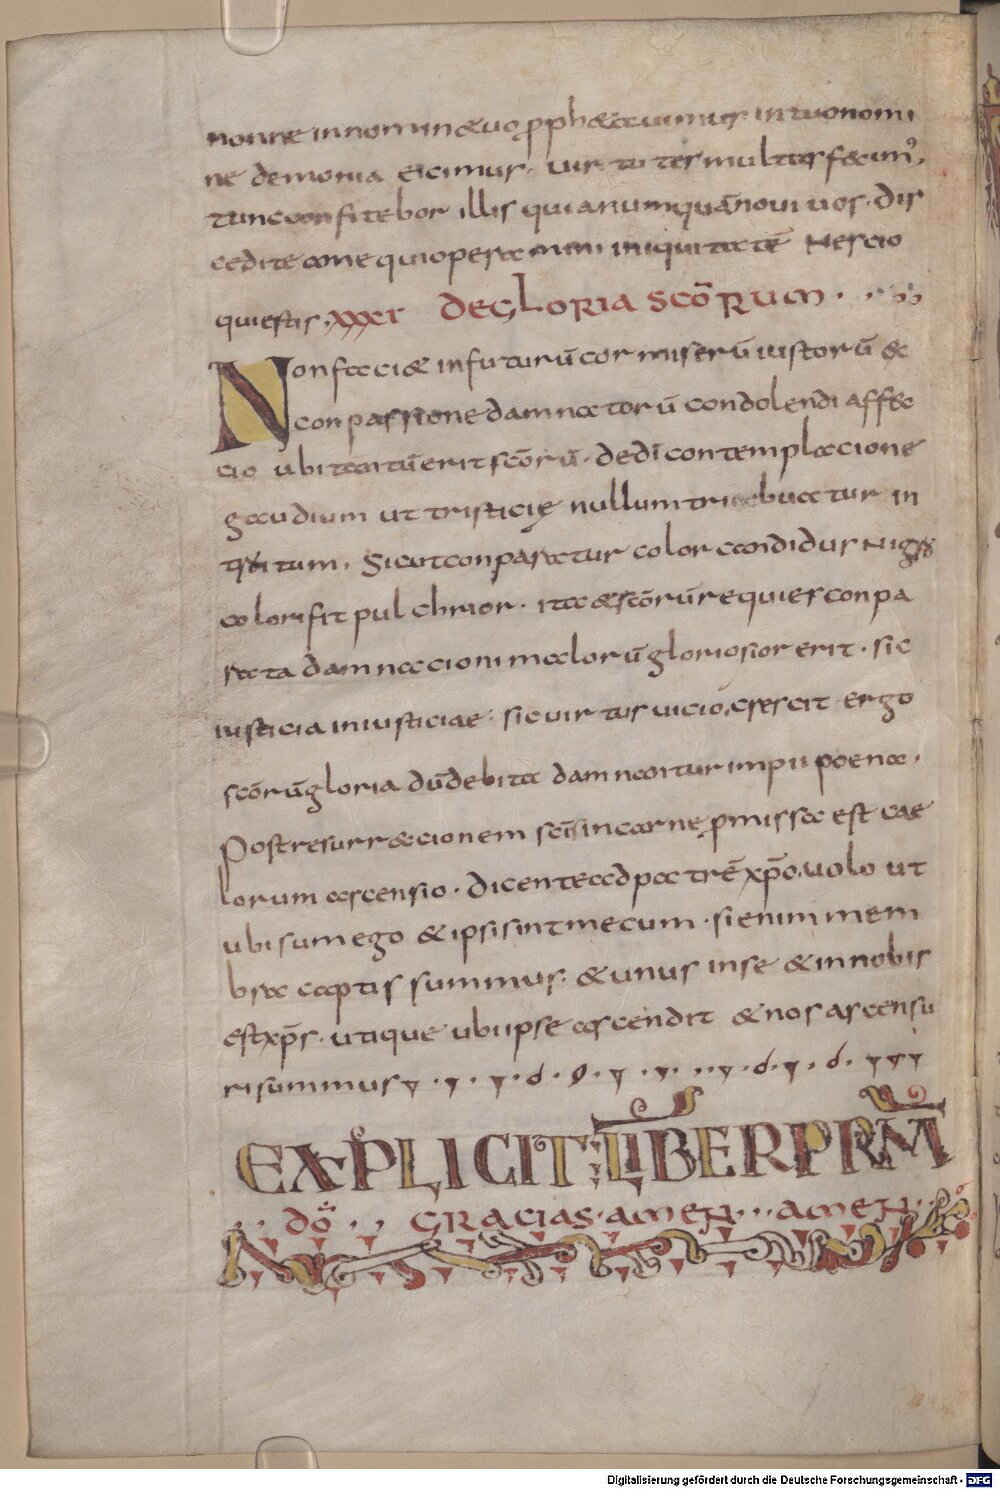 nonne in nomine tuo pphetauimus in tuo nomi
ne demonia eicimus. uirtutes multas fecim᾽.
tunc confitebor illis quia numquā noui uos. dis
cedite a me qui operamini iniquitatē Nescio
qui estis. XXXI DE GLORIA SCŌRUM
Non faciæ infuturū cor miserū iustorū &
conpassione damnatorū condolendi affec
cio ubi tantū erit scōrū. de dī contemplacione
gaudium ut tristicię nullum tribuatur in
troitum. Sicut conparatur color candidus nigro
colori fit pulchrior. ita & scōrū requies conpa
rata damnacioni malorū gloriosior erit. sic
iusticia iniusticiae. sic uirtus uicio, crescit ergo
scōrū gloria dū debita damnantur impii poena.
Post resurreccionem scīs in carne pmissa est cae
lorum ascensio. dicente ad patrē xp̄o. uolo ut
ubi sum ego & ipsi sint mecum. si enim mem
bra capitis summus. & unus in se & in nobis
est xp̄s. utique ubi ipse ascendit & nos ascensu
ri summus
EXPLICIT LIBER PRM̄
DŌ GRACIAS. AMEN AMEN
Digitalisierung gefördert durch die Deutsche Forschungsgemeinschaft - DFG